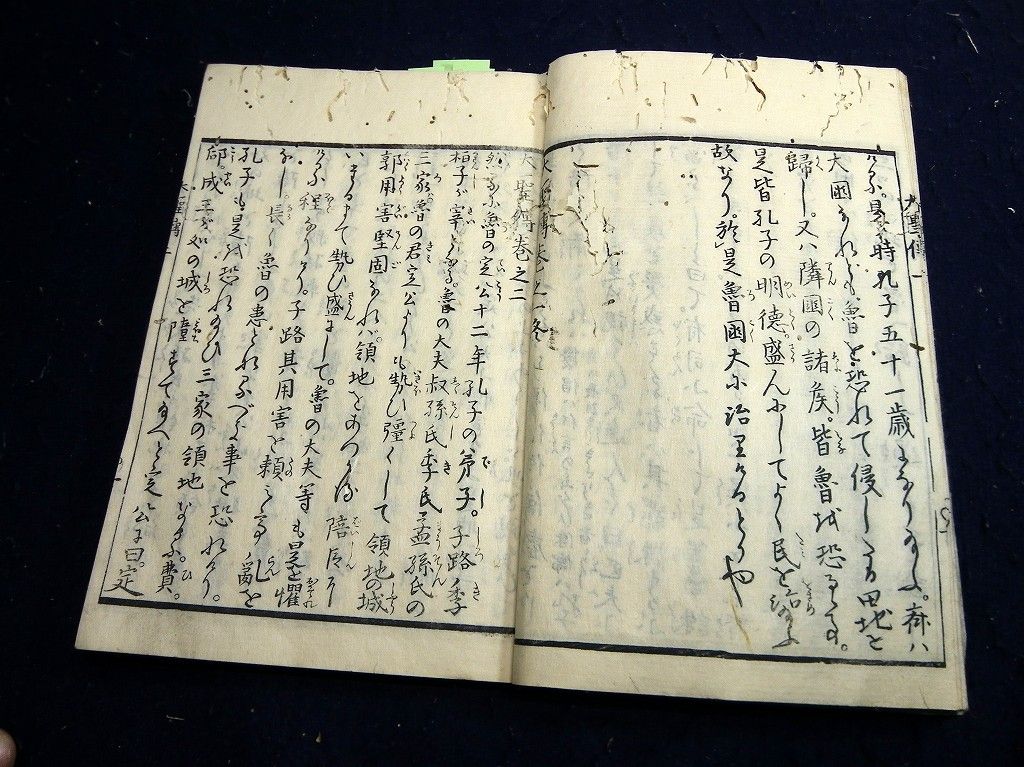 大聖傳一
けふ。是時孔子五十一歳になりたまふ。齊ハ
大國なれども魯を恐れて侵したる田地を
歸し。又ハ隣國の諸侯。皆魯を恐るゝ事。
是皆孔子の明徳盛んにしてよく民を治めたまふ
故なり。於是魯國大に治りけるとかや
大聖傳巻之一終
大聖傳巻之二
然るに魯の定公十二年孔子の弟子。子路季
桓子が宰となる。魯の大夫叔孫氏季氏孟孫氏の
三家魯の君定公よりも勢ひ彊くして領地の城
郭用害堅固なれバ。領地をあづかる陪臣
いまるまで勢ひ盛にして。魯の大夫等も是を懼
程なり。子路其用害を頼て乱を
なし。長く魯の患とならん事を恐れけり。
孔子も是を恐れたまひ三家の領地なる。費。
郈。成三ヶ所の城を墮すべしと定公に曰。定
大聖傳